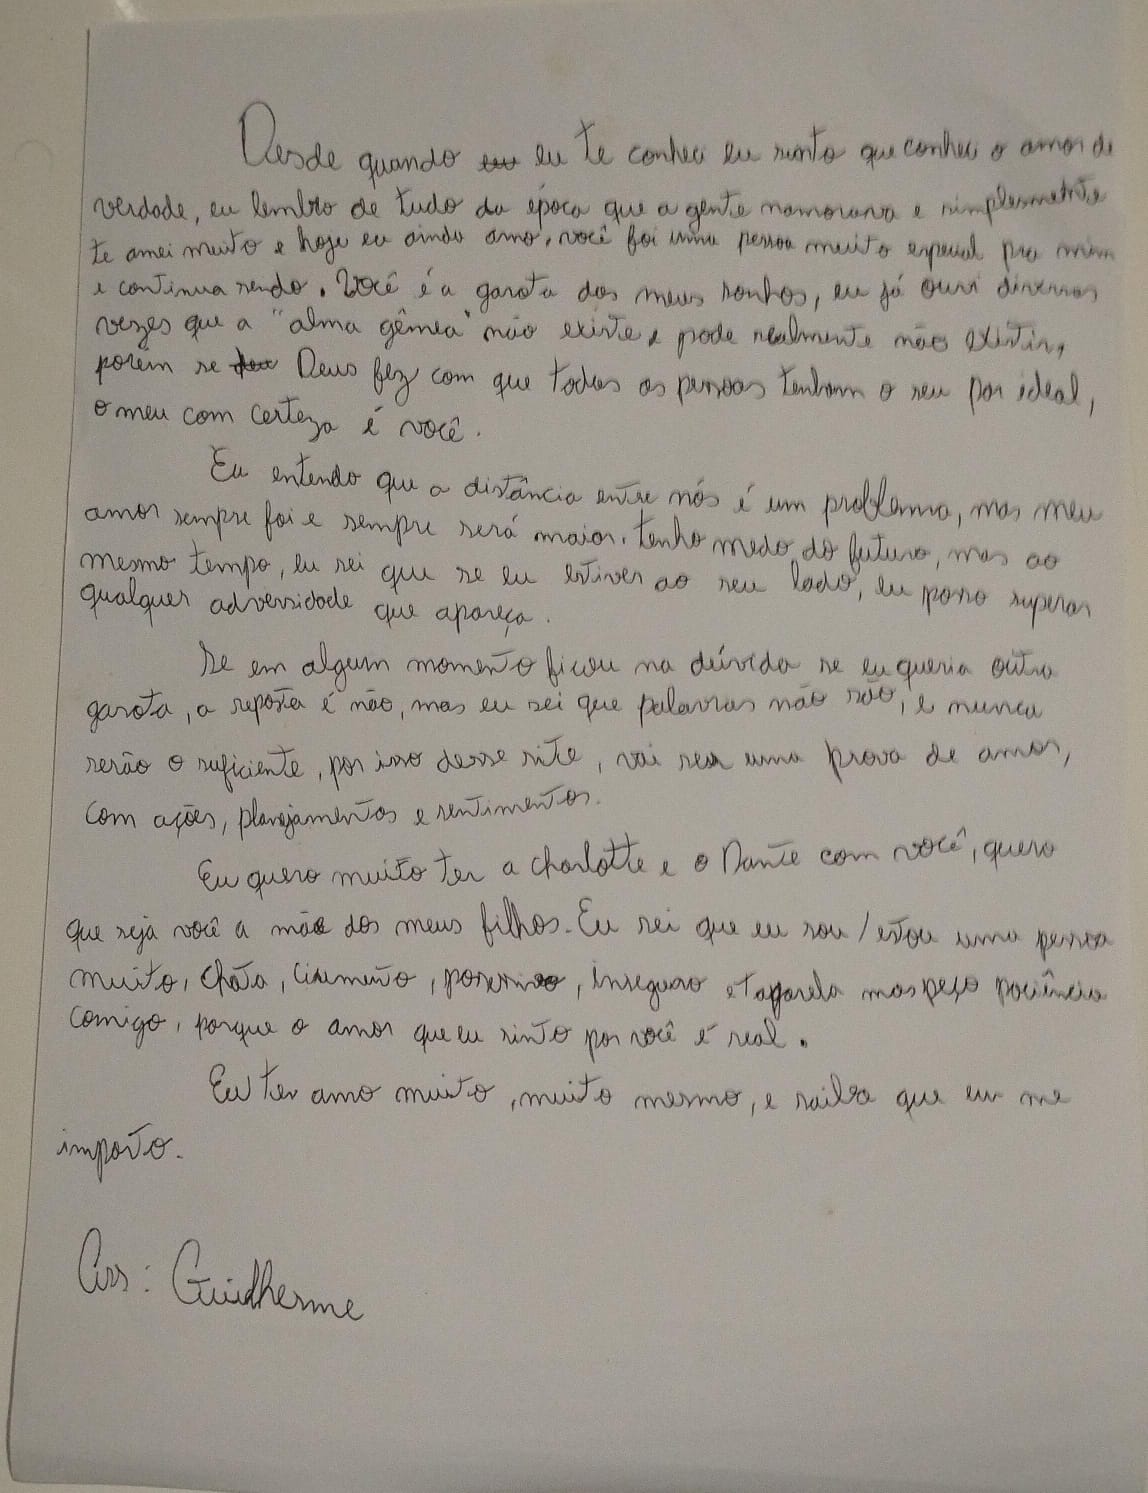 Desde quando eu te conheci eu sinto que conheci o amor de
verdade, eu lembro de tudo da época que a gente namorava e simplesmente
te amei muito e hoje eu ainda amo, você foi uma pessoa muito especial pra mim
e continua sendo. Você é a garota dos meus sonhos, eu já ouvi diversas
vezes que a "alma gêmea" não existe e pode realmente não existir,
porém se Deus fez com que todas as pessoas tenham o seu par ideal,
o meu com certeza é você.
Eu entendo que a distância entre nós é um problema, mas meu
amor sempre foi e sempre será maior. tenho medo do futuro, mas ao
mesmo tempo, eu sei que se eu estiver ao seu lado, eu posso superar
qualquer adversidade que apareça.
Se em algum momento ficou na dúvida se eu queria outra
garota, a reposta é não, mas eu sei que palavras não são, e nunca
serão o suficiente, por isso desse site, vai ser uma prova de amor,
com ações, planejamentos e sentimentos.
Eu quero muito ter a charlotte e o Dante com você, quero
que seja você a mãe dos meus filhos. Eu sei que eu sou/estou uma pessoa
muito, chata, ciumento, possessivo, inseguro e tagarela mas peço paciência
comigo, porque o amor que eu sinto por você é real.
Eu ter amo muito, muito mesmo, e saiba que eu me
importo.
Ass: Guilherme